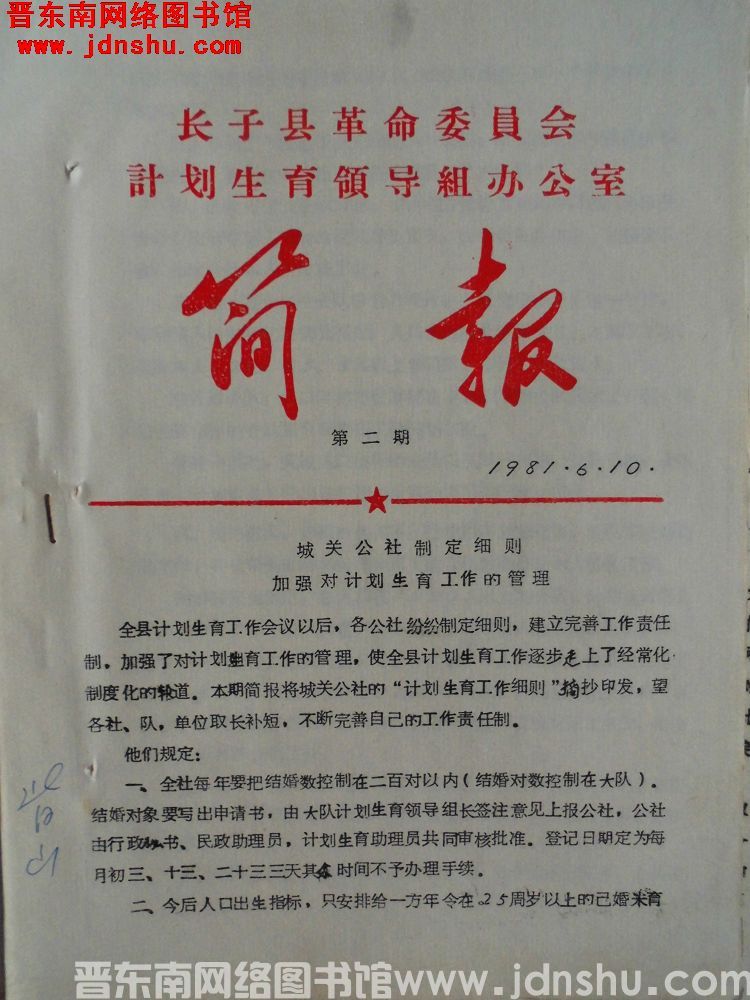 晋东南网络图书馆
www.jdnshu.com
长子县革命委員会
計划生育領导組办公室
简报
第二期
1981.6.10.
城关公社制定细则
加强对计划生育工作的管理
全县计划生育工作会议以后，各公社纷纷制定细则，建立完善工作责任
制，加强了对计划生育工作的管理，使全县计划生育工作逐步走上了经常化
制度化的轨道。本期简报将城关公社的“计划生育工作细则”摘抄印发，望
各社、队，单位取长补短，不断完善自己的工作责任制。
他们规定：
一、全社每年要把结婚数控制在二百对以内（结婚对数控制在大队）。
结婚对象要写出申请书，由大队计划生育领导组长签注意见上报公社，公社
由行政秘书、民政助理员，计划生育助理员共同审核批准。登记日期定为每
月初三、十三、二十三三天其余时间不予办理手续。
二、今后人口出生指标，只安排给一方年令在25周岁以上的已婚未育
晋东南网络图书馆www.jdnshu.com